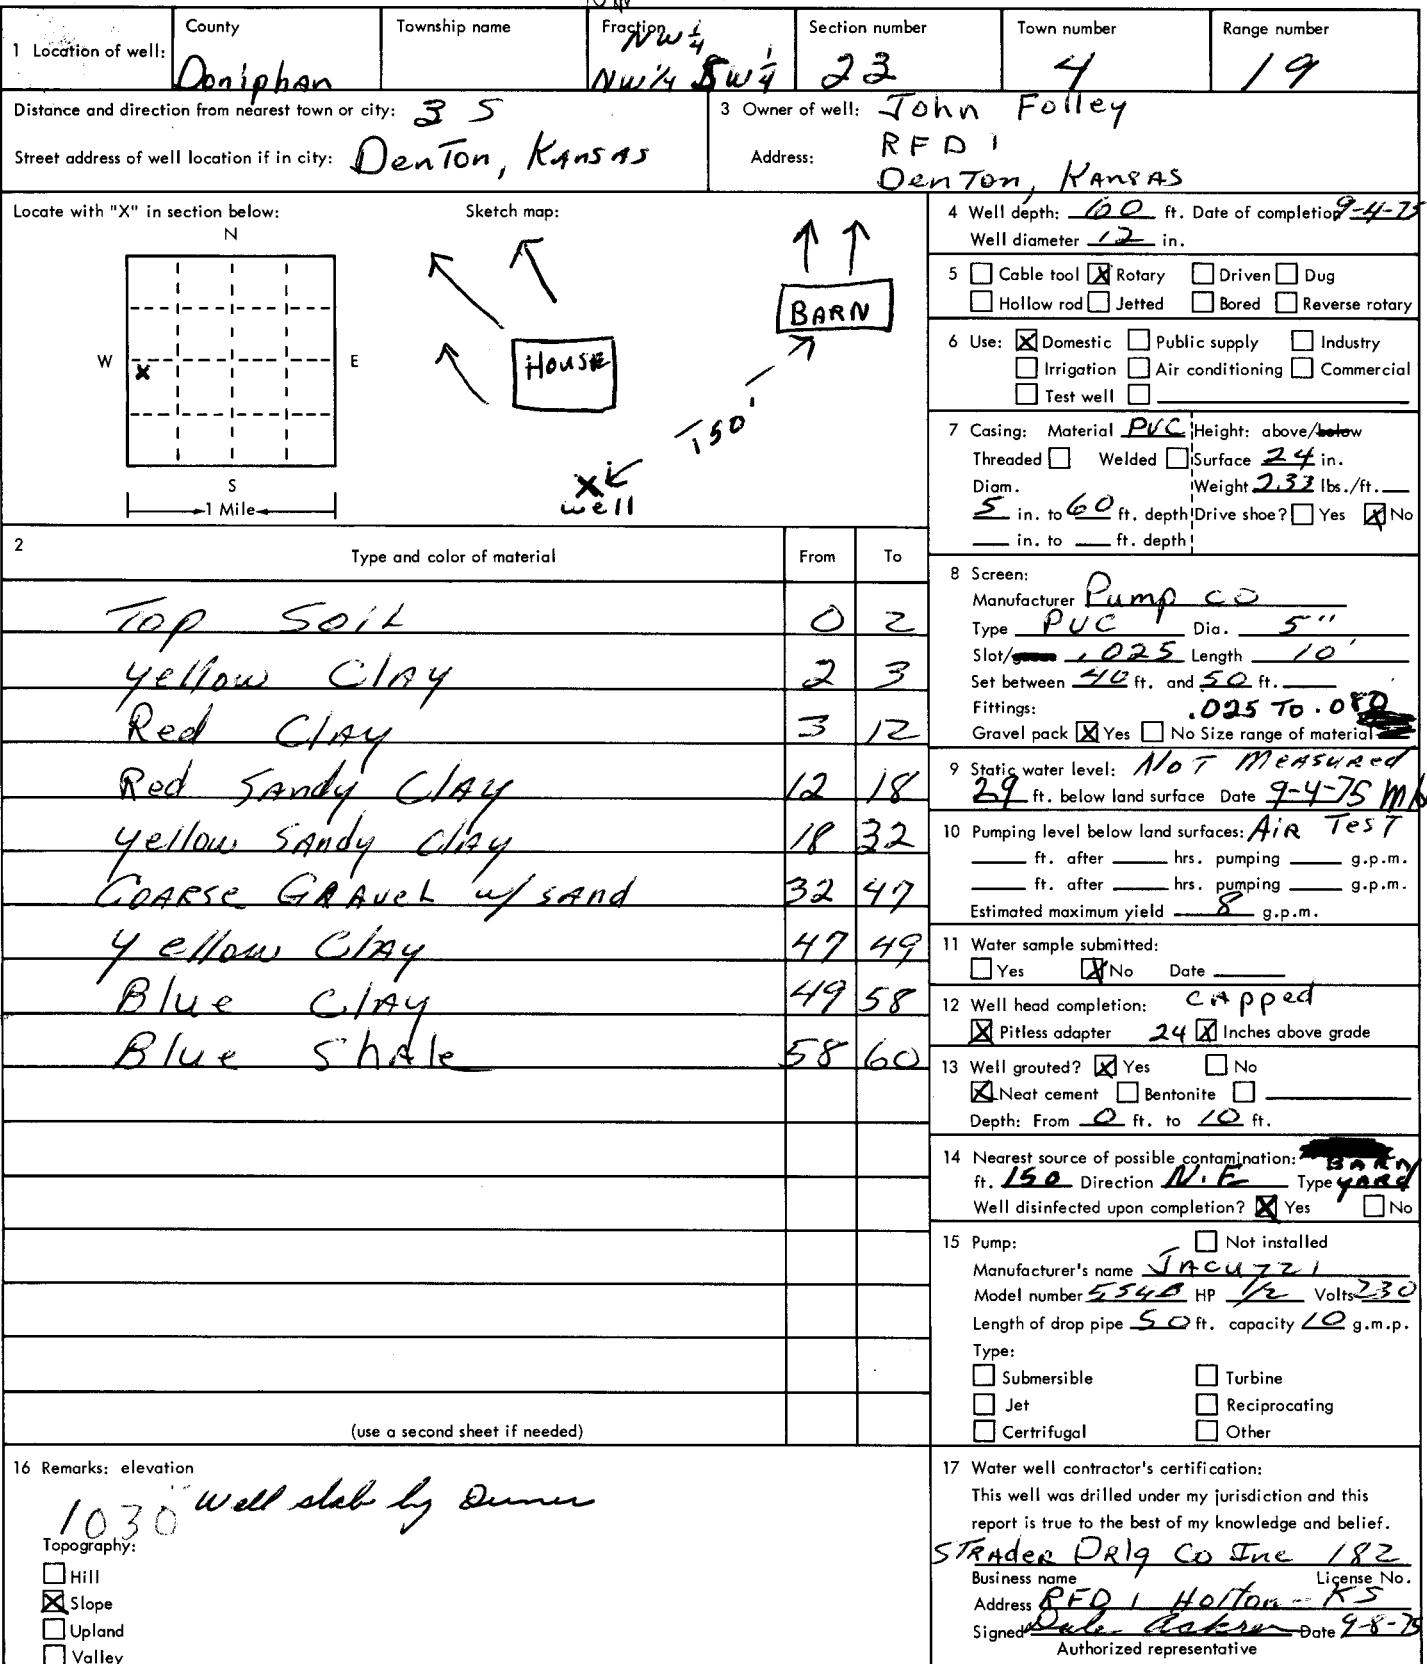 County
Township name
Fraction
Section number
Town number
Range number
1 Location of well:
Doniphan
NW 1/4
NW 1/4 SW 1/4
23
4
19
Distance and direction from nearest town or city: 3 S
Street address of well location if in city: Denton, Kansas
3 Owner of well: John Folley
Address: RFD 1
Denton, Kansas
Locate with "X" in section below:
Sketch map:
N
W
X
E
S
1 Mile
HOUSE
BARN
150'
X
well
4 Well depth: 60 ft. Date of completion 9-4-75
Well diameter 12 in.
5 Cable tool X Rotary Driven Dug
Hollow rod Jetted Bored Reverse rotary
6 Use: X Domestic Public supply Industry
Irrigation Air conditioning Commercial
Test well
7 Casing: Material PVC Height: above/below
Threaded Welded Surface 24 in.
Diam. Weight 2.33 lbs./ft.
5 in. to 60 ft. depth Drive shoe? Yes X No
in. to ft. depth
2
Type and color of material From To
Top Soil 0 2
Yellow Clay 2 3
Red Clay 3 12
Red Sandy Clay 12 18
Yellow Sandy Clay 18 32
Coarse Gravel w/ sand 32 47
Yellow Clay 47 49
Blue Clay 49 58
Blue Shale 58 60
(use a second sheet if needed)
8 Screen:
Manufacturer Pump Co
Type PVC Dia. 5"
Slot/ .025 Length 10'
Set between 40 ft. and 50 ft.
Fittings: .025 TO .080
Gravel pack X Yes No Size range of material
9 Static water level: Not Measured
29 ft. below land surface Date 9-4-75
10 Pumping level below land surfaces: Air Test
ft. after hrs. pumping g.p.m.
ft. after hrs. pumping g.p.m.
Estimated maximum yield 8 g.p.m.
11 Water sample submitted:
Yes X No Date
12 Well head completion: capped
X Pitless adapter 24 X Inches above grade
13 Well grouted? X Yes No
X Neat cement Bentonite
Depth: From 0 ft. to 10 ft.
14 Nearest source of possible contamination: BARN
ft. 150 Direction N.E Type yard
Well disinfected upon completion? X Yes No
15 Pump: Not installed
Manufacturer's name Jacuzzi
Model number HP 1/2 Volts 230
Length of drop pipe 50 ft. capacity 10 g.m.p.
Type:
Submersible Turbine
Jet Reciprocating
Certrifugal Other
16 Remarks: elevation
1030 Well slab by Owner
Topography:
Hill
X Slope
Upland
Valley
17 Water well contractor's certification:
This well was drilled under my jurisdiction and this
report is true to the best of my knowledge and belief.
Strader Drlg Co Inc 182
Business name License No.
Address RFD 1 Holton - KS
Signed Dale Date 9-8-75
Authorized representative